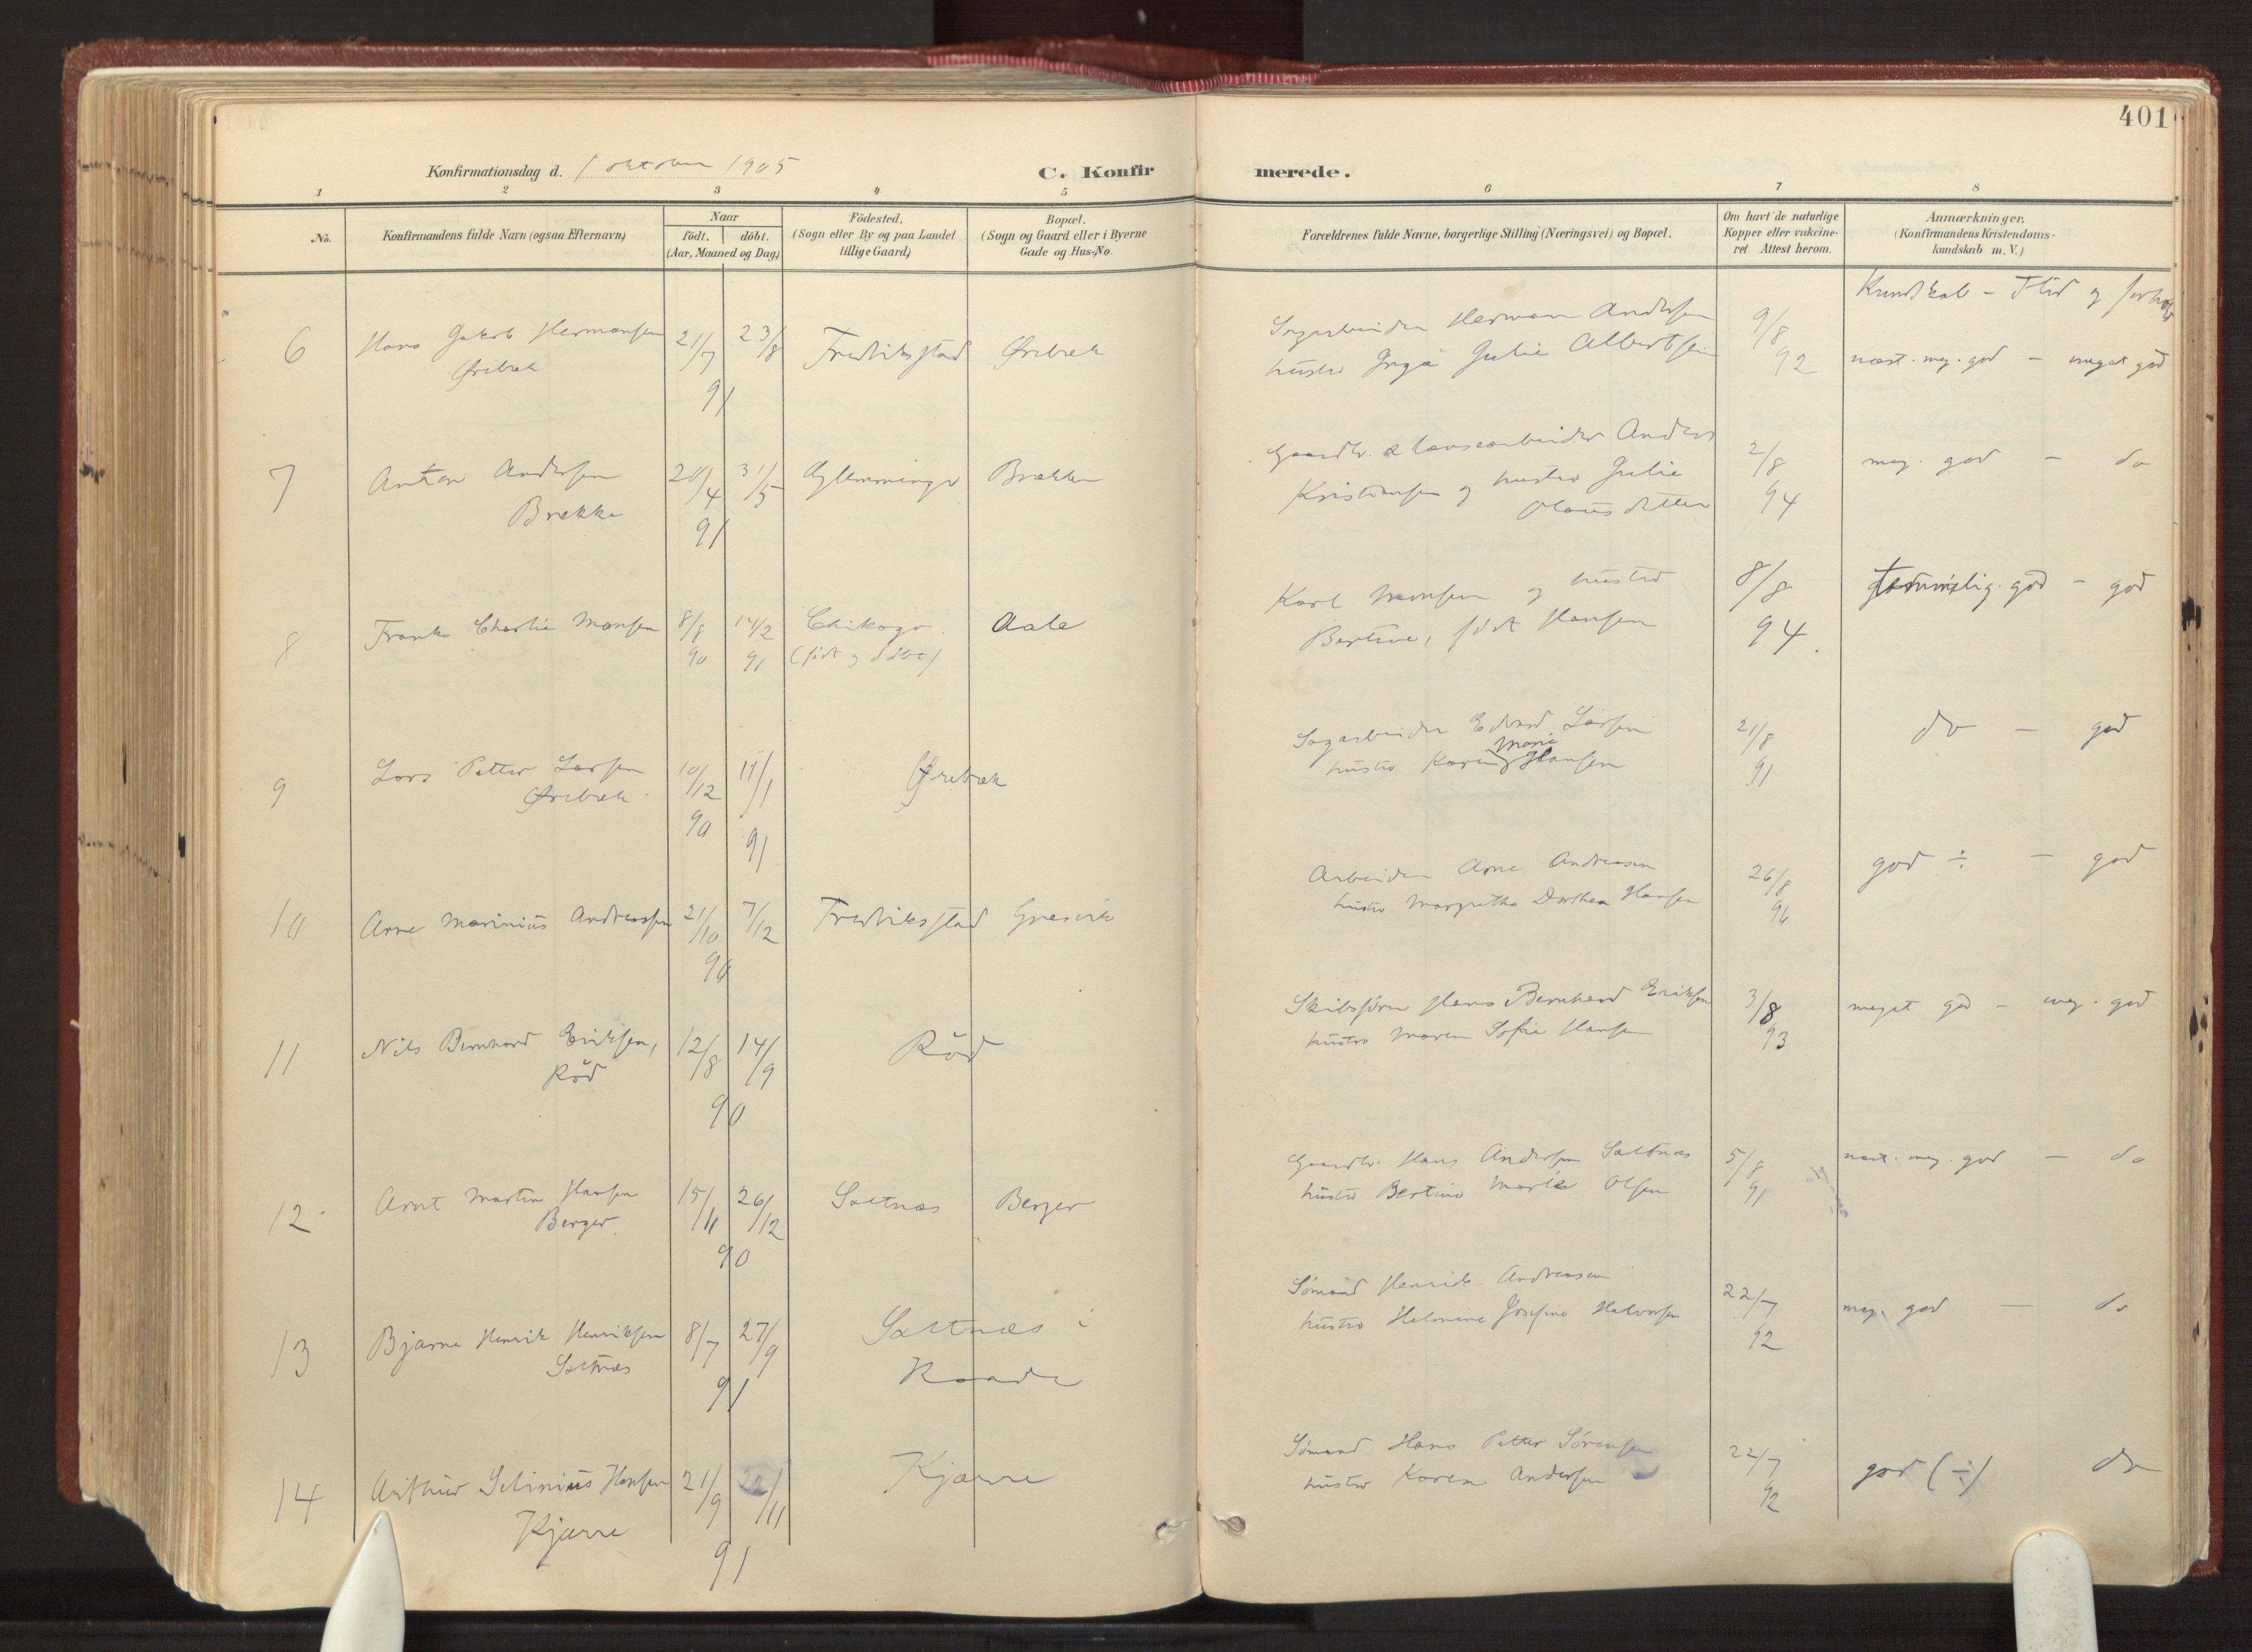 401
Konfirmationsdag d. 1 oktober 1905
C. Konfirmerede.
1 2 3 4 5 6 7 8
No.
Konfirmandens fulde Navn (ogsaa Efternavn)
Naar
födt, döbt.
(Aar, Maaned og Dag.)
Födested.
(Sogn eller By og paa Landet
tillige Gaard)
Bopæl.
(Sogn og Gaard eller i Byerne
Gade og Hus-No.
Forældrenes fulde Navne, borgerlige Stilling (Næringsvei) og Bopæl.
Om havt de naturlige
Kopper eller vakcine-
ret. Attest herom.
Anmærkninger.
(Konfirmandens Kristendoms-
kundskab m. V.)
Kundskab - Flid og forhold
6 Hans Jakob Hermansen 21/7 23/8 Fredriksstad Ørebæk
Ørebæk
91
Sagarbeider Herman Andersen 9/8
hustru Inga Julie Albertsen 92 næst. meg. god - meget god
7 Anton Andersen 20/4 31/5 Glemminge Brække
Brække
91
Gaardbr. & Anders 2/8 meg. god - do
Kristiansen og hustru Julie 94
8 Frank Charlie Monsen 8/8 14/2 Chikago. Aale
90 91 (födt og döbt)
Karl Monsen og hustru 8/8 temmelig god - god
Bertine, födt Hansen 94.
9 Lars Petter Larsen 10/12 11/1 Ørebæk
Ørebæk
90 91
Sagarbeider Edvard Larsen 21/8 do - god
Marie
hustru Karen Hansen 91
10 Arne Marinius Andreassen 21/10 7/12 Fredriksstad Græsvik
90
Arbeider Arne Andreasen 26/8 god ÷ - god
hustru Margrethe Dorthea Hansen
11 Nils Bernhard Eriksen, 12/8 14/9 Röd
Röd
90
Skibsförer Hans Bernhard Eriksen 3/8 meget god - meg. god
hustru Maren Sofie Hansen 93
12 Arnt Martin Hansen 15/11 26/12 Saltnæs Berger
Berger
90
Gaardbr. Hans Andersen Saltnæs 5/8 næst. meg. god - do
hustru Bertine Marie Olsen 91
13 Bjarne Henrik Henriksen 8/7 27/9 Saltnæs i
Saltnæs Raade
91
Sömand Henrik Andreasen 22/7 meg. god - do
hustru Helmine Josefine Halvorsen 92
14 Arthur Selinius Hansen 21/9 22/11 Kjærre
Kjærre
91
Sömand Hans Petter Sörensen 22/7 god (÷) do
hustru Karen Andersen 92